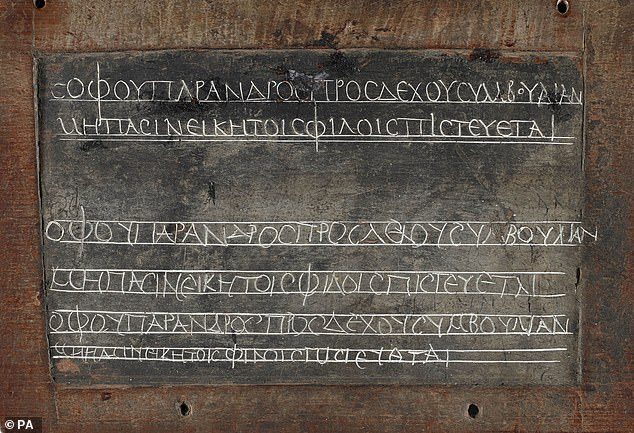 ϹΟΦΟΥΠΑΡΑΝΔΡΟϹΠΡΟϹΔΕΧΟΥϹΥΜΒΟΥΛΙΑΝ
ΜΗΠΑϹΙΝΕΙΚΗΤΟΙϹΦΙΛΟΙϹΠΙϹΤΕΥΕΤΑΙ
ΟΦΟΥΠΑΡΑΝΔΡΟϹΠΡΟϹΔΕΧΟΥϹΥΜΒΟΥΛΙΑΝ
ΜΗΠΑϹΙΝΕΙΚΗΤΟΙϹΦΙΛΟΙϹΠΙϹΤΕΥΕΤΑΙ
ΟΦΟΥΠΑΡΑΝΔΡΟϹΠΡΟϹΔΕΧΟΥϹΥΜΒΟΥΛΙΑΝ
ΜΗΠΑϹΙΝΕΙΚΗΤΟΙϹΦΙΛΟΙϹΠΙϹΤΕΥΕΤΑΙ
© PA